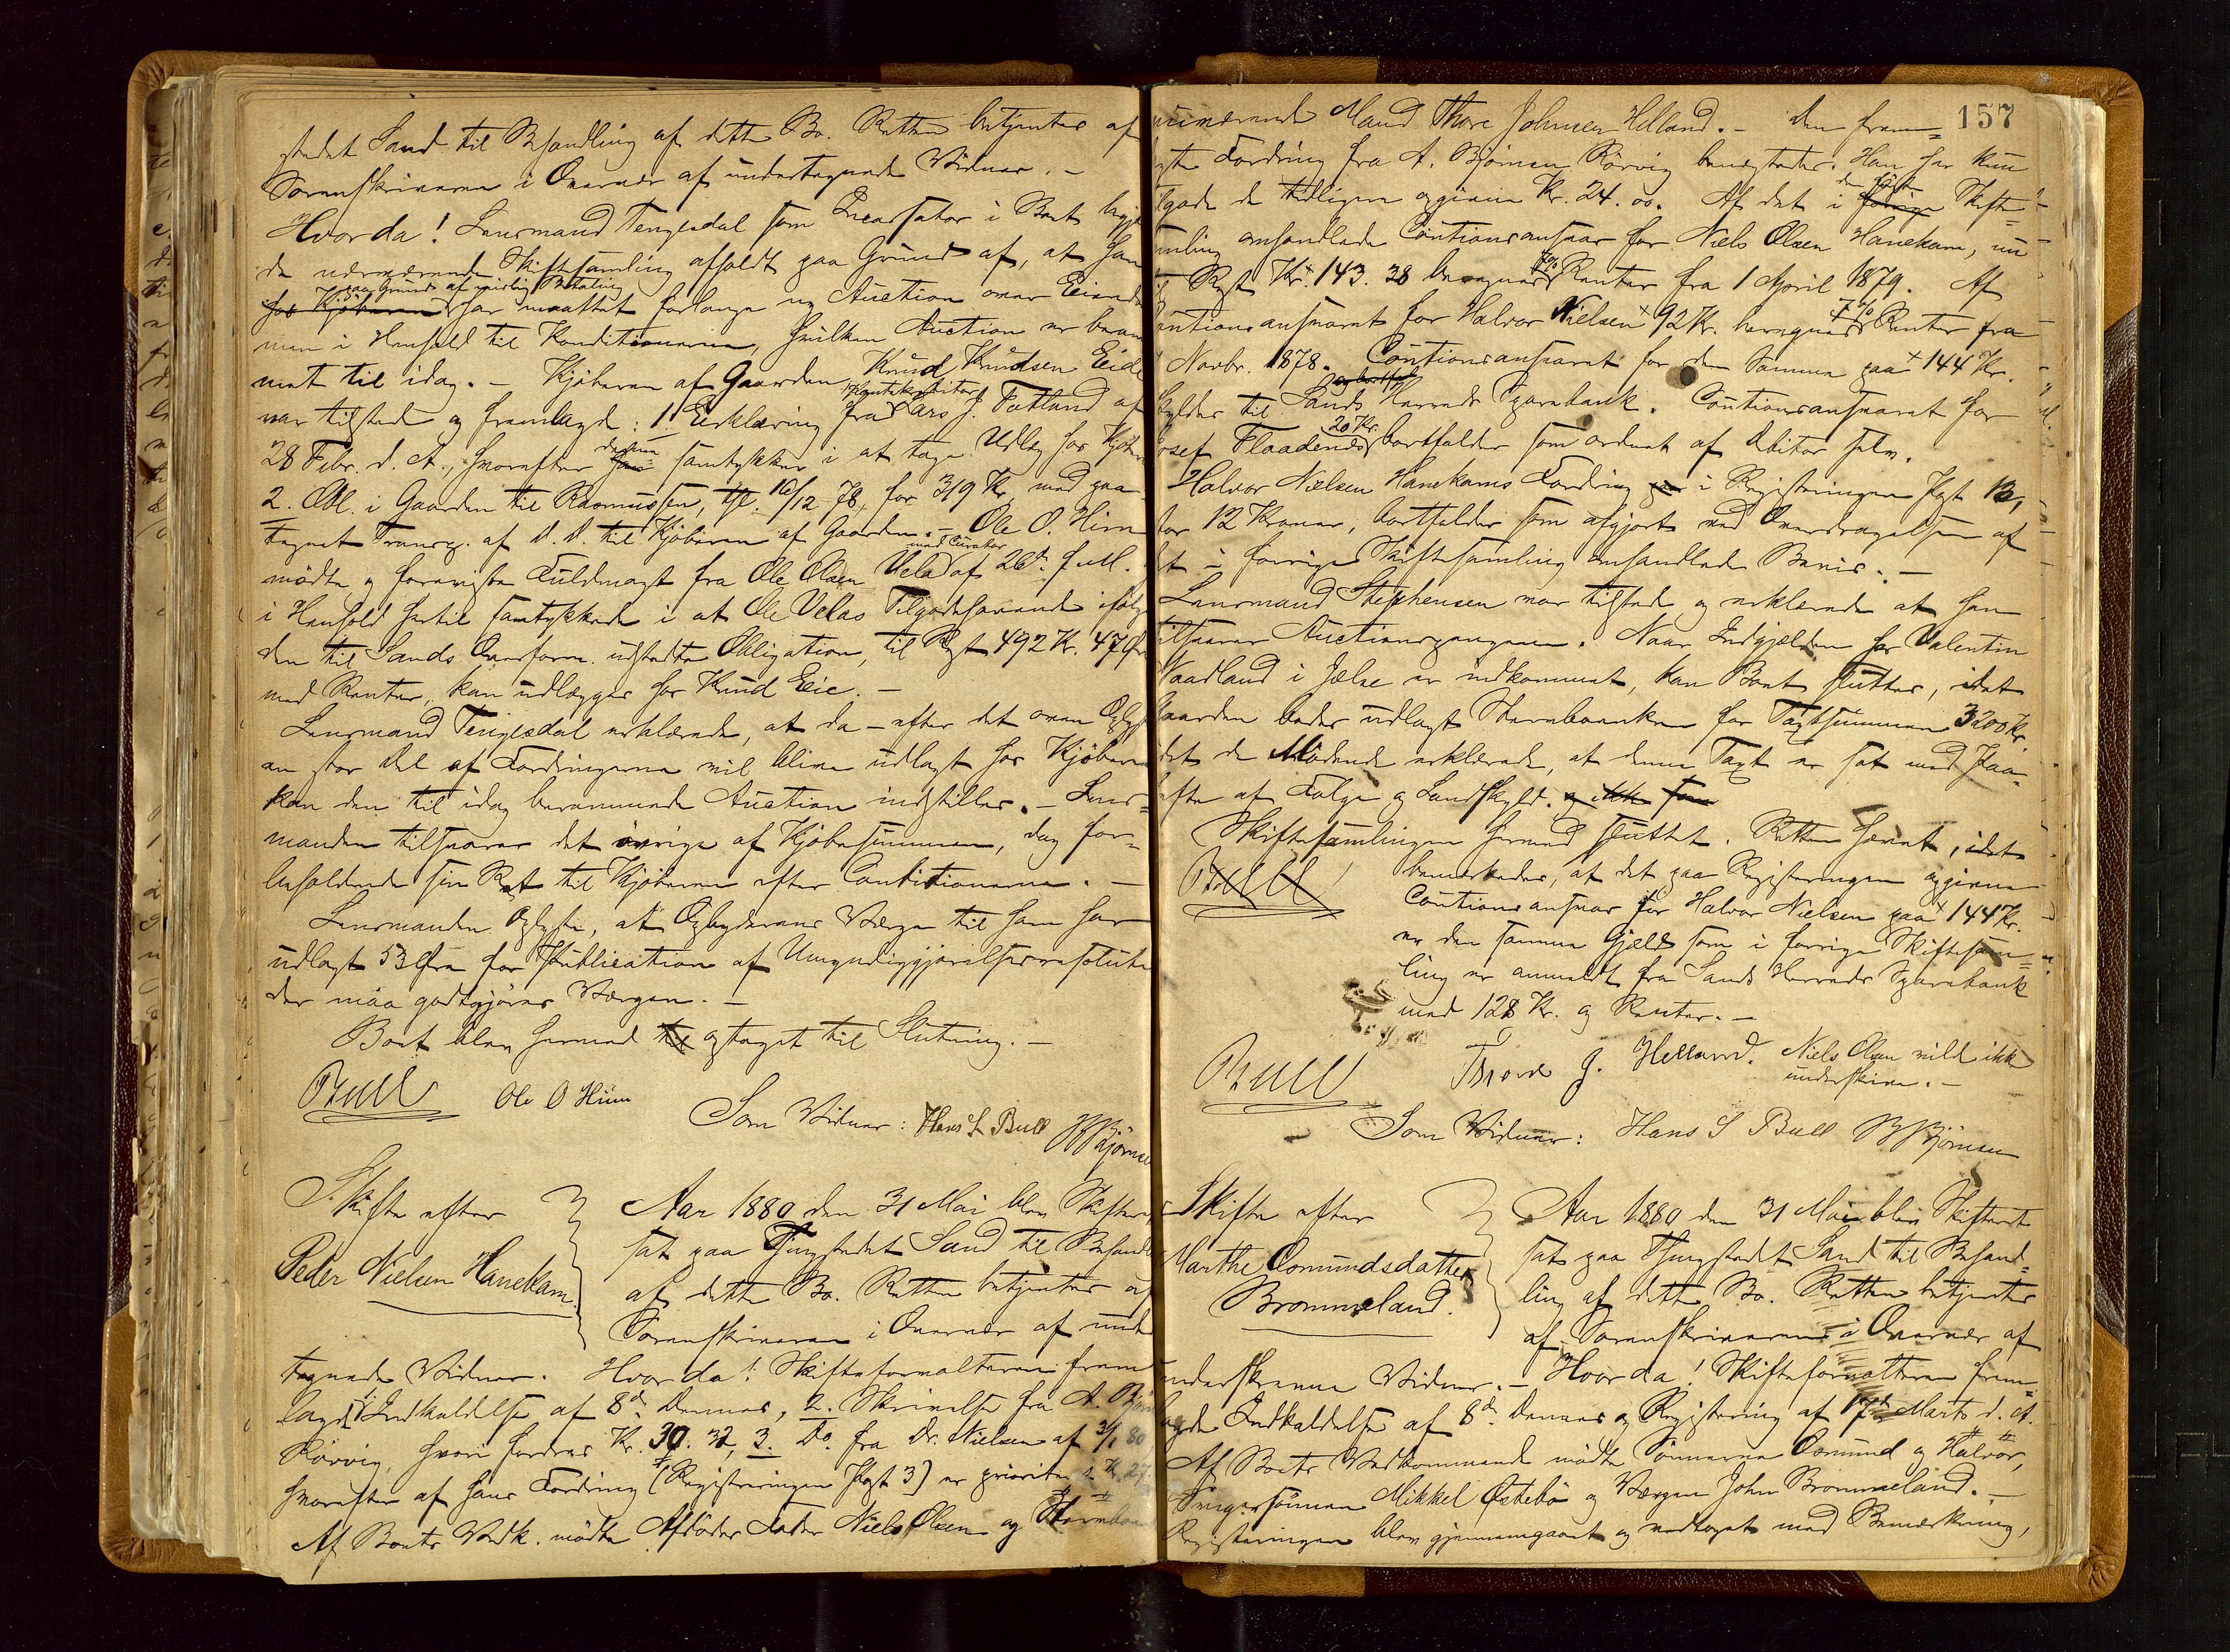 stedet Sand til Behandling af dette Bo. Retten betjentes af
Sorenskriveren i Overvær af undertegnede Vidner. –
Hvor da! Lensmand Tengesdal som Incassator i Boet begjæ
de nærværende Skiftesamling afholdt paa Grund af, at han
paa Grund af mislig Betaling
hos Kjøberen har maattet forlange ny Auction over Eiendo
men i Henhold til Konditionerne, hvilken Auction er beram
met til idag. – Kjøberen af Gaarden, Knud Knudsen Eide
var tilstede og fremlagde: 1. Erklæring fra Pantekreditor Lars J. Fatland af
28 Febr. d. A., hvorefter denne samtykker i at tage Udlæg hos Kjøberen
2. Obl. i Gaarden til Rasmussen, tgl. 10/12 78, for 319 Kr. med paa
tegnet Transp. af D. D. til Kjøberen af Gaarden. – Ole O. Hiim
mødte og foreviste Fuldmagt fra Ole Olsen Vela med Curator af 26de f. M.
i Henhold hertil samtykkede i at Ole Velas Tilgodehavende ifølge
den til Sands Overform. udstedte Obligation, til Rest 492 Kr. 47 Øre
med Renter, kan udlægges hos Knud Eie. –
Lensmand Tengesdal erklærede, at da – efter det oven Oplyste
en stor Del af Fordringerne vil blive udlagt hos Kjøberen
kan den til idag berammede Auction indstilles. – Lens=
manden tilsvarer det øvrige af Kjøbesummen, dog for=
beholdende sin Ret til Kjøberen efter Conditionerne. –
Lensmanden oplyste, at Opbyderens Værge til ham har
udlagt 53 Øre for Publication af Umyndiggjørelsesresolution
der maa godtgjøres Værgen. –
Boet blev hermed optaget til Slutning. –
Bull Ole O Hiim Som Vidner: Hans S Bull B Bjørnsen
Skifte efter
Peder Nielsen Hanekam.
Aar 1880 den 31 Mai blev Skifteret
sat paa Thingstedet Sand til Behandl
af dette Bo. Retten betjentes af
Sorenskriveren i Overvær af under
tegnede Vidner. Hvor da! Skifteforvalteren frem
lagde 1. Indkaldelse af 8de Dennes, 2. Skrivelse fra A. Bjørnsen
Rørvig, hvori fordres Kr. 30. 32, 3. Do. fra Dr. Nielsen af 3/1 80
hvorefter af hans Fordring (Registreringen Post 3) er prioriteret Kr. 27.
Af Boets Vedk. mødte Afdødes Fader Niels Olsen og Stervbo
157
nærværende Mand Thore Johnsen Helland. – Den frem=
satte Fordring fra A. Bjørnsen Rørvig benegtedes. Han har kun
tilgode de tidligere opgivne Kr. 24. 00. Af det i den første Skifte
samling omhandlede Cautionsansvar for Niels Olsen Hanekam, nu
til Rest Kr. 143. 38 beregnes 7% Renter fra 1 April 1879. Af
Cautionsansvaret for Halvor Nielsen 92 Kr. beregnes 7% Renter fra
Novbr. 1878. Cautionsansvaret for den Samme paa 144 Kr.
skyldes til Sands Herreds Sparebank. Cautionsansvaret for
Josef Flaadenes 20 Kr. bortfalder som ordnet af Debitor selv.
Halvor Nielsen Hanekams Fordring i Registreringen Post 12,
for 12 Kroner, bortfalder som afgjort ved Overdragelsen af
det i forrige Skiftesamling omhandlede Bevis. –
Lensmand Stephensen var tilstede og erklærede at han
tilsvarer Auctionspengene. Naar Indgjælden hos Valentin
Vaadland i Jelse er indkommet, kan Boet sluttes, idet
Gaarden bedes udlagt Stervboenken for Taxtsummen 3200 Kr.
idet de Mødende erklærede, at denne Taxt er sat med Paa
hefte af Følge og Landskyld. og ikke som
Skiftesamlingen hermed sluttet. Retten hævet, idet
Bull
bemerkedes, at det paa Registreringen opgivne
Cautionsansvar for Halvor Nielsen paa 144 Kr.
er den samme Gjæld som i forrige Skiftesam=
ling er anmeldt fra Sands Herreds Sparebank
med 128 Kr. og Renter. –
Bull Thore J. Helland. Niels Olsen vilde ikke
underskrive. –
Som Vidner: Hans S Bull B Bjørnsen
Skifte efter
Marthe Osmundsdatter
Brommeland.
Aar 1880 den 31 Mai blev Skifteret
sat paa Thingstedet Sand til Behand=
ling af dette Bo. Retten betjentes
af Sorenskriveren i Overvær af
underskrevne Vidner. – Hvor da! Skifteforvalteren frem=
lagde Indkaldelse af 8de Dennes og Registrering af 17de Marts d. A.
Af Boets Vedkommende mødte Sønnerne Osmund og Halvor,
Svigersønnen Mikkel Østebø og Værgen John Brommeland. –
Registreringen blev gjennemgaaet og vedtaget med Bemærkning,